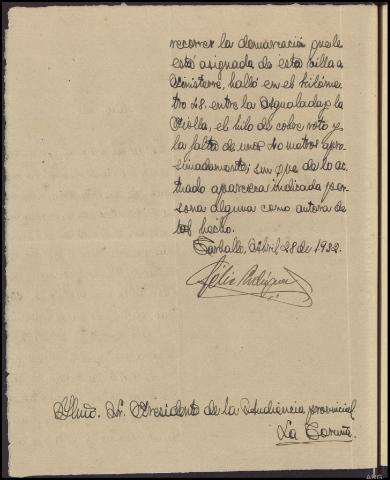 recorrer la demarcación que le
está asignada de esta villa a
Finisterre, halló en el kilóme-
tro 48 entre la Agualada y la
Piolla, el hilo de cobre roto y
la falta de unos 40 metros apro-
simadamente; sin que de lo ac-
tuado aparezca indicada per-
sona alguna como autora de
tal hecho.
Carballo, Abril 28 de 1922.
Félix Rodríguez
Ilmo. Sr. Presidente de la Audiencia provincial
La Coruña.